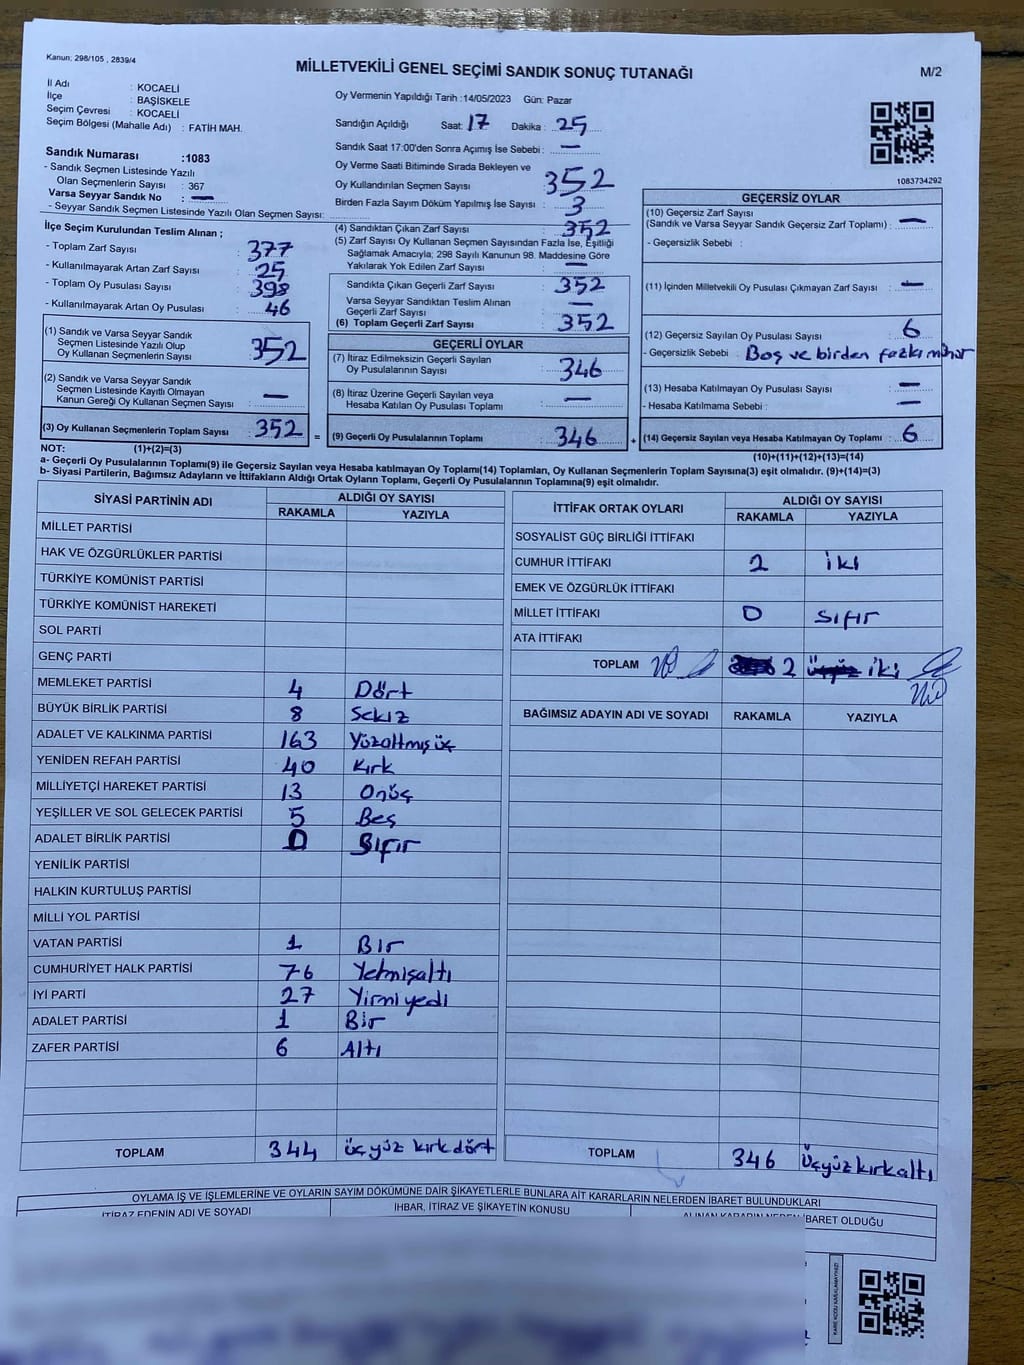 Kanun; 298/105 , 2839/4
MİLLETVEKİLİ GENEL SEÇİMİ SANDIK SONUÇ TUTANAĞI
M/2
İl Adı : KOCAELİ
İlçe : BAŞİSKELE
Seçim Çevresi : KOCAELİ
Seçim Bölgesi (Mahalle Adı) : FATİH MAH.
Sandık Numarası :1083
- Sandık Seçmen Listesinde Yazılı
Olan Seçmenlerin Sayısı : 367
Varsa Seyyar Sandık No : —
- Seyyar Sandık Seçmen Listesinde Yazılı Olan Seçmen Sayısı:
Oy Vermenin Yapıldığı Tarih :14/05/2023 Gün: Pazar
Sandığın Açıldığı Saat: 17 Dakika : 25
Sandık Saat 17:00'den Sonra Açımış İse Sebebi : —
Oy Verme Saati Bitiminde Sırada Bekleyen ve
Oy Kullandırılan Seçmen Sayısı : 352
Birden Fazla Sayım Döküm Yapılmış İse Sayısı : 3
1083734292
İlçe Seçim Kurulundan Teslim Alınan ;
- Toplam Zarf Sayısı : 377
- Kullanılmayarak Artan Zarf Sayısı : 25
- Toplam Oy Pusulası Sayısı : 398
- Kullanılmayarak Artan Oy Pusulası : 46
(1) Sandık ve Varsa Seyyar Sandık
Seçmen Listesinde Yazılı Olup
Oy Kullanan Seçmenlerin Sayısı : 352
(2) Sandık ve Varsa Seyyar Sandık
Seçmen Listesinde Kayıtlı Olmayan
Kanun Gereği Oy Kullanan Seçmen Sayısı : —
(3) Oy Kullanan Seçmenlerin Toplam Sayısı : 352
(4) Sandıktan Çıkan Zarf Sayısı : 352
(5) Zarf Sayısı Oy Kullanan Seçmen Sayısından Fazla İse, Eşitliği
Sağlamak Amacıyla; 298 Sayılı Kanunun 98. Maddesine Göre
Yakılarak Yok Edilen Zarf Sayısı : —
Sandıkta Çıkan Geçerli Zarf Sayısı : 352
Varsa Seyyar Sandıktan Teslim Alınan
Geçerli Zarf Sayısı : —
(6) Toplam Geçerli Zarf Sayısı : 352
GEÇERLİ OYLAR
(7) İtiraz Edilmeksizin Geçerli Sayılan
Oy Pusulalarının Sayısı : 346
(8) İtiraz Üzerine Geçerli Sayılan veya
Hesaba Katılan Oy Pusulası Toplamı : —
= (9) Geçerli Oy Pusulalarının Toplamı : 346
GEÇERSİZ OYLAR
(10) Geçersiz Zarf Sayısı
(Sandık ve Varsa Seyyar Sandık Geçersiz Zarf Toplamı) : —
- Geçersizlik Sebebi :
(11) İçinden Milletvekili Oy Pusulası Çıkmayan Zarf Sayısı : —
(12) Geçersiz Sayılan Oy Pusulası Sayısı : 6
- Geçersizlik Sebebi : Boş ve birden fazla mühür
(13) Hesaba Katılmayan Oy Pusulası Sayısı : —
- Hesaba Katılmama Sebebi : —
+ (14) Geçersiz Sayılan veya Hesaba Katılmayan Oy Toplamı : 6
NOT: (1)+(2)=(3)
(10)+(11)+(12)+(13)=(14)
a- Geçerli Oy Pusulalarının Toplamı(9) ile Geçersiz Sayılan veya Hesaba katılmayan Oy Toplamı(14) Toplamları, Oy Kullanan Seçmenlerin Toplam Sayısına(3) eşit olmalıdır. (9)+(14)=(3)
b- Siyasi Partilerin, Bağımsız Adayların ve İttifakların Aldığı Ortak Oyların Toplamı, Geçerli Oy Pusulalarının Toplamına(9) eşit olmalıdır.
SİYASİ PARTİNİN ADI ALDIĞI OY SAYISI
RAKAMLA YAZIYLA
MİLLET PARTİSİ
HAK VE ÖZGÜRLÜKLER PARTİSİ
TÜRKİYE KOMÜNİST PARTİSİ
TÜRKİYE KOMÜNİST HAREKETİ
SOL PARTİ
GENÇ PARTİ
MEMLEKET PARTİSİ 4 Dört
BÜYÜK BİRLİK PARTİSİ 8 Sekiz
ADALET VE KALKINMA PARTİSİ 163 Yüzaltmış üç
YENİDEN REFAH PARTİSİ 40 Kırk
MİLLİYETÇİ HAREKET PARTİSİ 13 Onüç
YEŞİLLER VE SOL GELECEK PARTİSİ 5 Beş
ADALET BİRLİK PARTİSİ 0 Sıfır
YENİLİK PARTİSİ
HALKIN KURTULUŞ PARTİSİ
MİLLİ YOL PARTİSİ
VATAN PARTİSİ 1 Bir
CUMHURİYET HALK PARTİSİ 76 Yetmişaltı
İYİ PARTİ 27 Yirmiyedi
ADALET PARTİSİ 1 Bir
ZAFER PARTİSİ 6 Altı
TOPLAM 344 üçyüz kırkdört
İTTİFAK ORTAK OYLARI ALDIĞI OY SAYISI
RAKAMLA YAZIYLA
SOSYALİST GÜÇ BİRLİĞİ İTTİFAKI
CUMHUR İTTİFAKI 2 iki
EMEK VE ÖZGÜRLÜK İTTİFAKI
MİLLET İTTİFAKI 0 sıfır
ATA İTTİFAKI
TOPLAM 2 iki
BAĞIMSIZ ADAYIN ADI VE SOYADI RAKAMLA YAZIYLA
TOPLAM 346 Üçyüzkırkaltı
OYLAMA İŞ VE İŞLEMLERİNE VE OYLARIN SAYIM DÖKÜMÜNE DAİR ŞİKAYETLERLE BUNLARA AİT KARARLARIN NELERDEN İBARET BULUNDUKLARI
İTİRAZ EDENİN ADI VE SOYADI
İHBAR, İTİRAZ VE ŞİKAYETİN KONUSU
ALINAN KARARIN NEDEN İBARET OLDUĞU